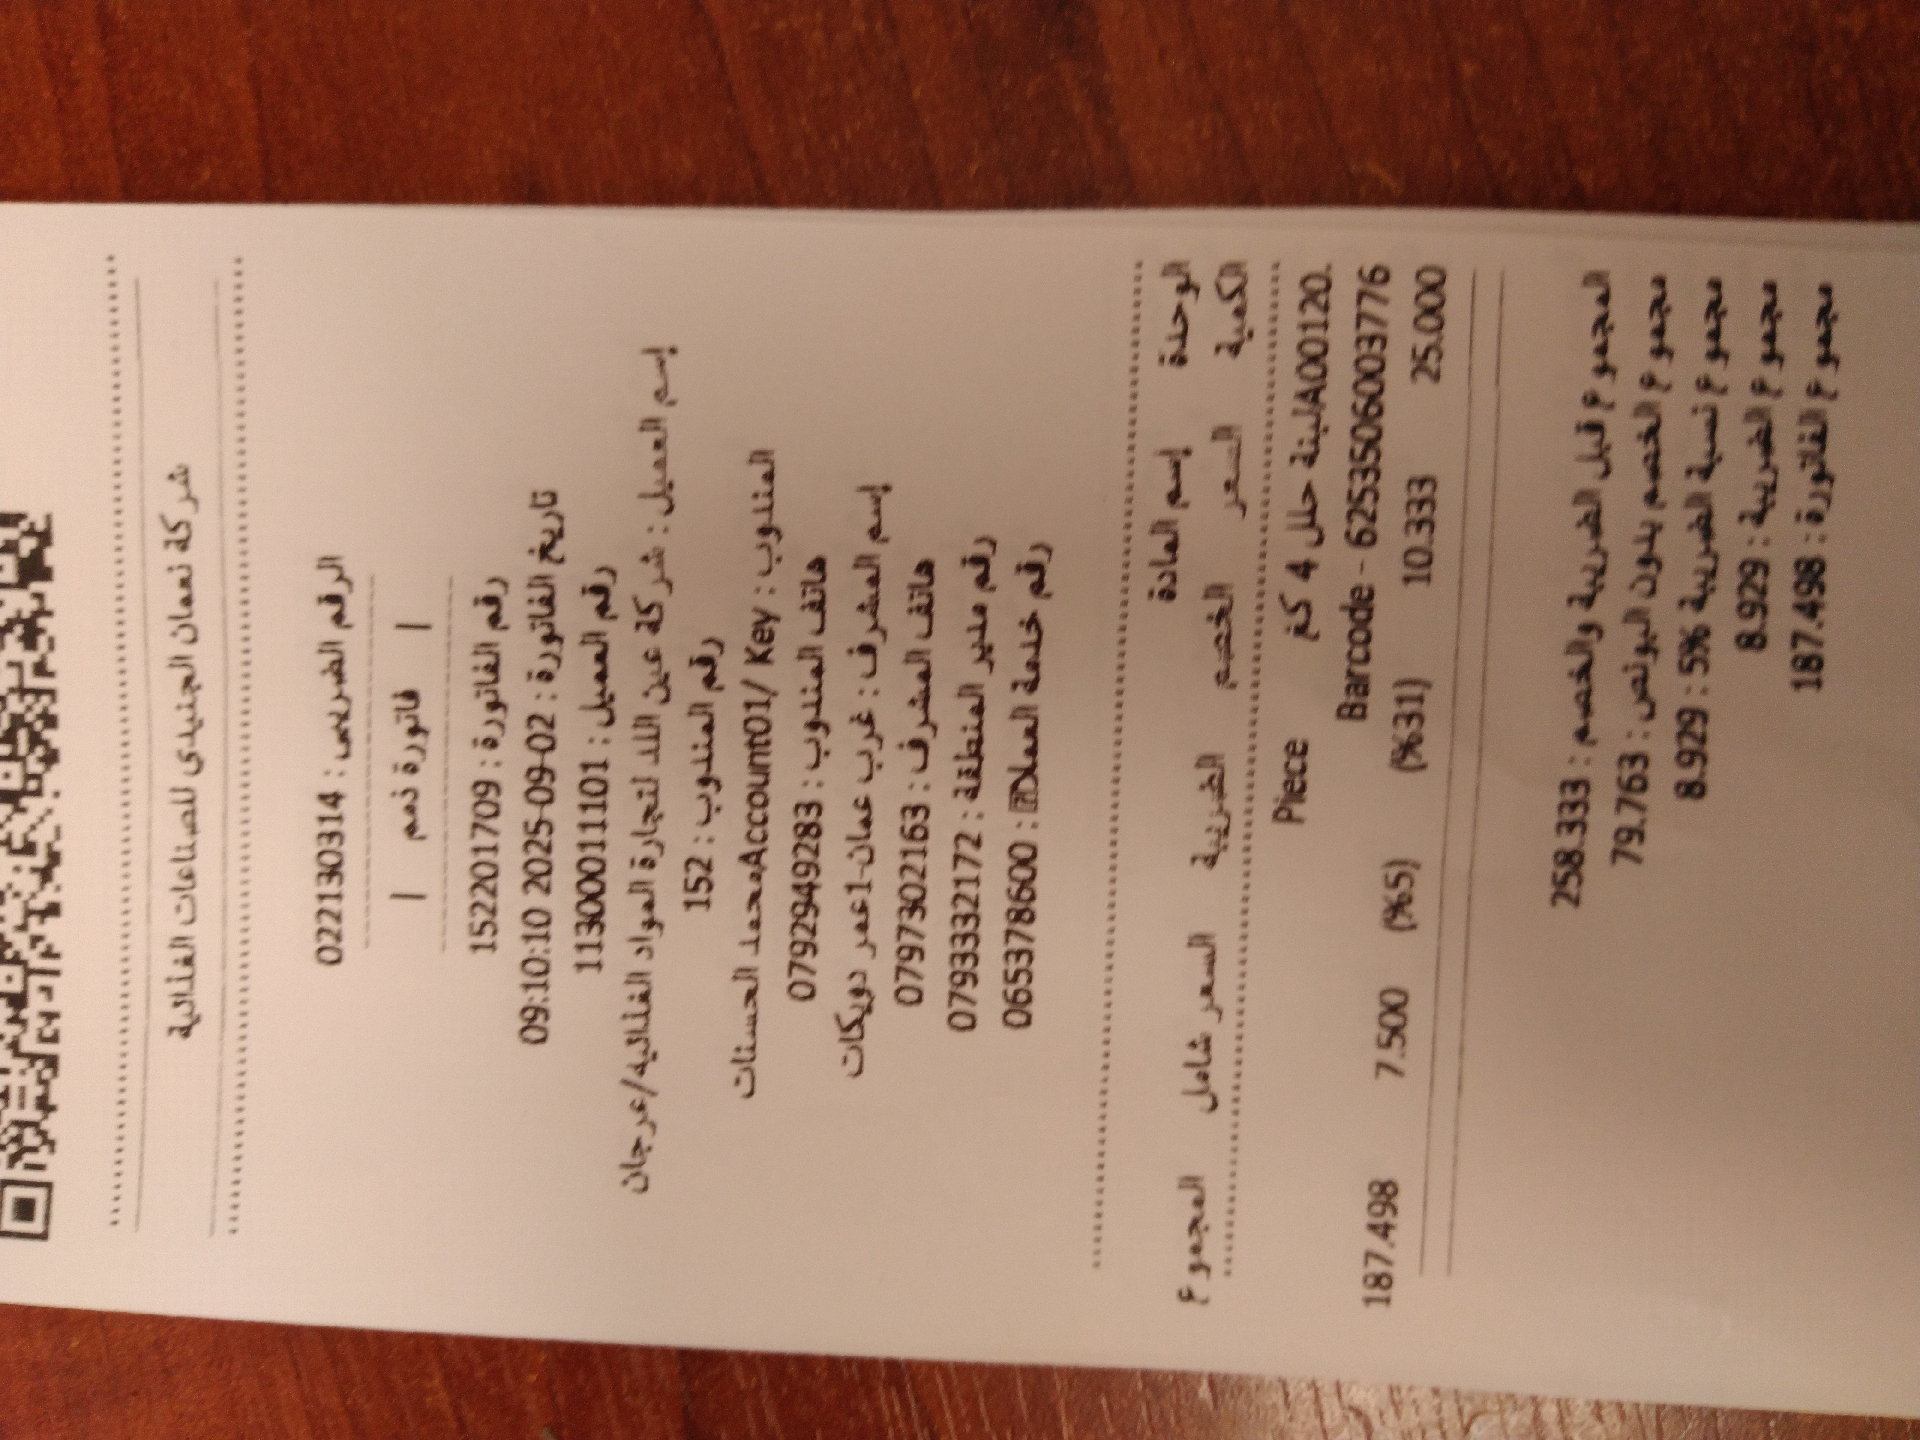 شركة نعمان الجنيدي للصناعات الغذائية
الرقم الضريبي : 0222130314
| فاتورة ذمم |
رقم الفاتورة : 152201709
تاريخ الفاتورة : 2025-09-02 09:10:10
رقم العميل : 113000011101
إسم العميل : شركة عين اللد لتجارة المواد الغذائيه/عرجان
رقم المندوب : 152
المندوب : Account01/ Keyمحمد الحسنات
هاتف المندوب : 0792949283
إسم المشرف : غرب عمان-1عمر دويكات
هاتف المشرف : 0797302163
رقم مدير المنطقة : 0793332172
رقم خدمة العملا : 065378600
الوحدة إسم المادة
الكمية السعر الخصم الضريبة السعر شامل المجموع
A00120.لبنة حلل 4 كغ Piece
Barcode - 6253506003776
25.000 10.333 (%31) (%5) 7.500 187.498
المجموع قبل الضريبة والخصم : 258.333
مجموع الخصم بدون البونص : 79.763
مجموع نسبة الضريبة 5% : 8.929
مجموع الضريبة : 8.929
مجموع الفاتورة : 187.498